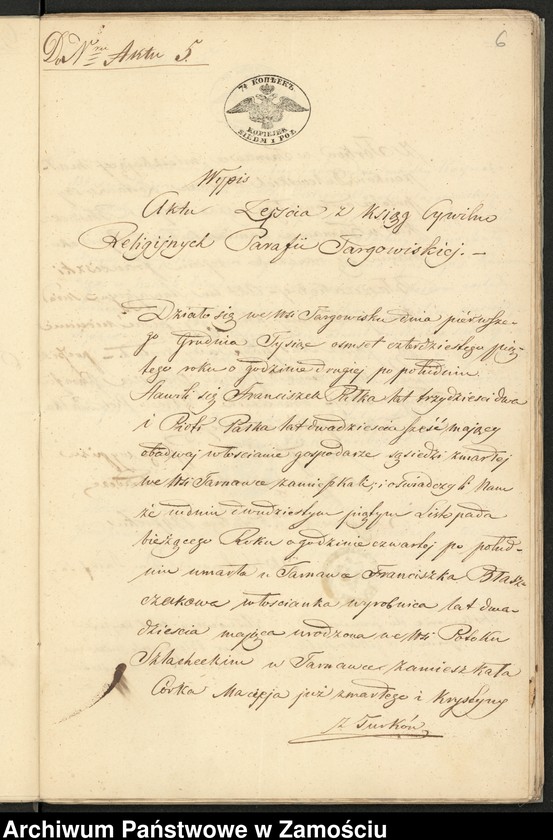 Do Nru Aktu 5.
6
7½ КОПѢЕКЪ
KOPIEJEK
SIEDM I PÓŁ
Wypis
Aktu Zeyścia z Ksiąg Cywilno
Religijnych Parafii Targowiskiej. —
Działo się we Wsi Targowisku dnia pierwsze-
go Grudnia Tysiąc osmset czterdziestego pią-
tego roku o godzinie drugiej po południu.
Stawili się Franciszek Pałka lat trzydzieści dwa
i Piotr Pałka lat dwadzieścia sześć mający
obadwaj włościanie gospodarze sąsiedzi zmarłej
we Wsi Tarnawce zamieszkali; i oświadczyli Nam
że w dniu dwudziestym piątym Listopada
bieżącego Roku o godzinie czwartej po połud-
niu umarła w Tarnawce Franciszka Błasz-
czakowa włościanka wyrobnica lat dwa-
dzieścia mająca urodzona we Wsi Potoku
Szlacheckim w Tarnawce zamieszkała
Córka Macieja już zmarłego i Krystyny
z Turków
Archiwum Państwowe w Zamościu